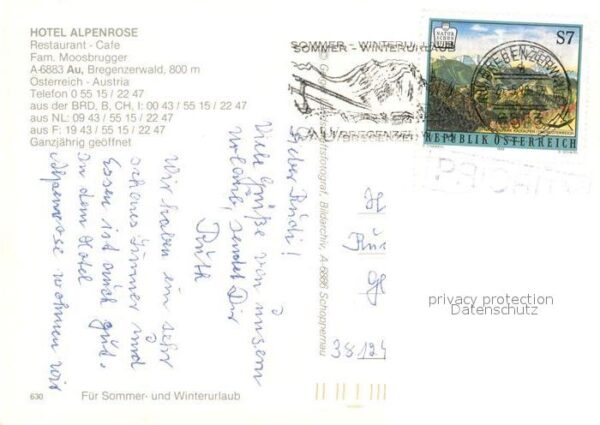 HOTEL ALPENROSE
Restaurant - Cafe
Fam. Moosbrugger
A-6883 Au, Bregenzerwald, 800 m
Österreich - Austria
Telefon 0 55 15 / 22 47
aus der BRD, B, CH, I: 00 43 / 55 15 / 22 47
aus NL: 09 43 / 55 15 / 22 47
aus F: 19 43 / 55 15 / 22 47
Ganzjährig geöffnet
Lieber Rüdi!
Viele Grüße von unserm
Urlaub, sendet Dir
Ruth
Wir haben ein sehr
schönes Zimmer und
Essen ist auch gut.
In dem Hotel
Alpenrose wohnen wir
630
Für Sommer- und Winterurlaub
Bildarchiv, A-6886 Schoppernau
SOMMER - WINTERURLAUB
AU BREGENZERWALD
NATUR
S7
REPUBLIK ÖSTERREICH
38124
privacy protection
Datenschutz